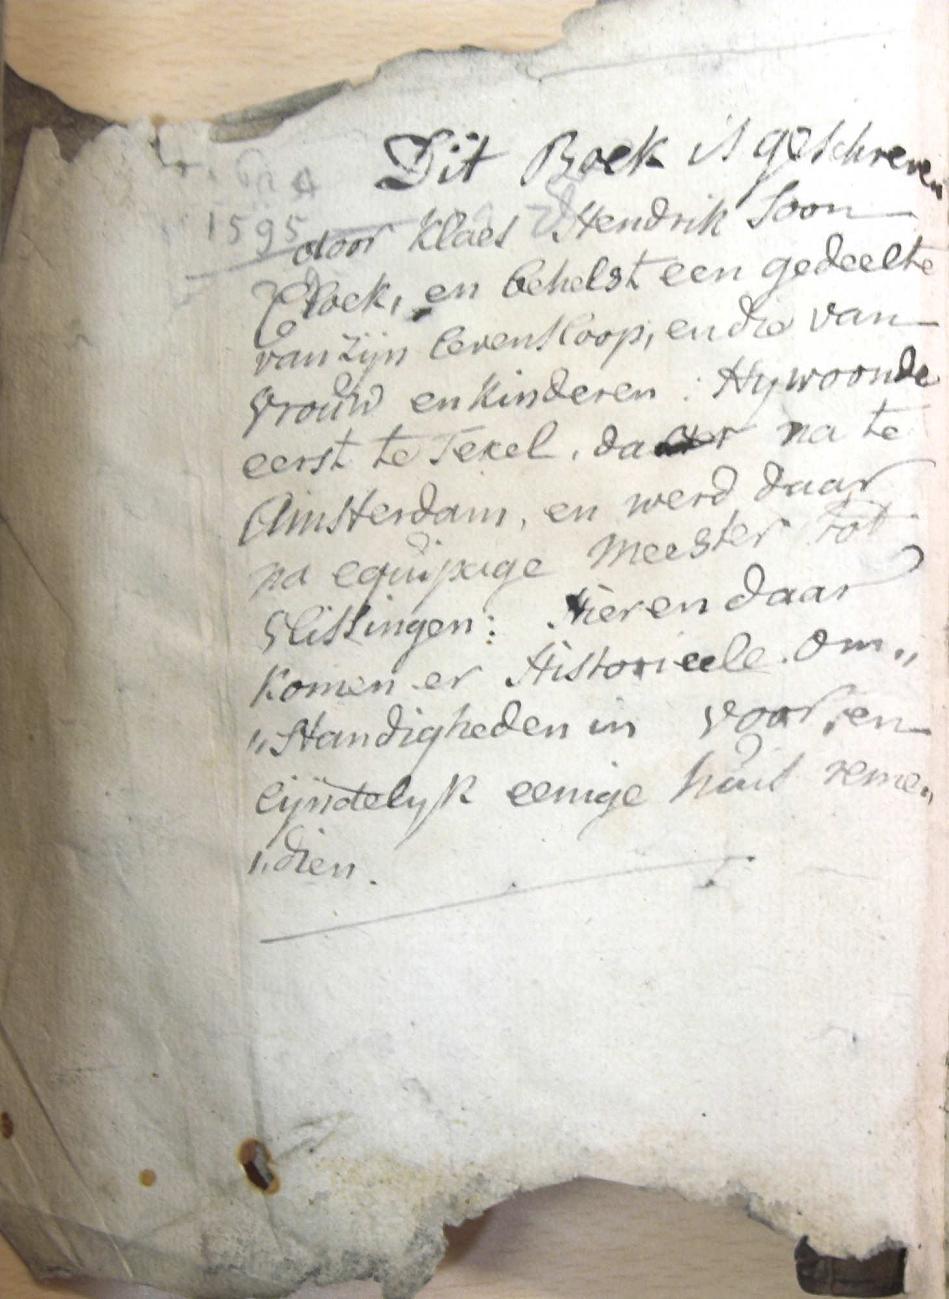 1595
Dit Boek is geschreven
door Klaes Hendrik Soon
en behelst een gedeelte
van zijn levensloop, en die van
vrouw en kinderen : Hy woonde
eerst te Texel, daar na te
Amsterdam, en werd daar
na equipage Meester tot
Vlissingen: Hier en daar
komen er Historieele Om„
„standigheden in voor, en
eijndelyk eenige huis reme„
„dien.